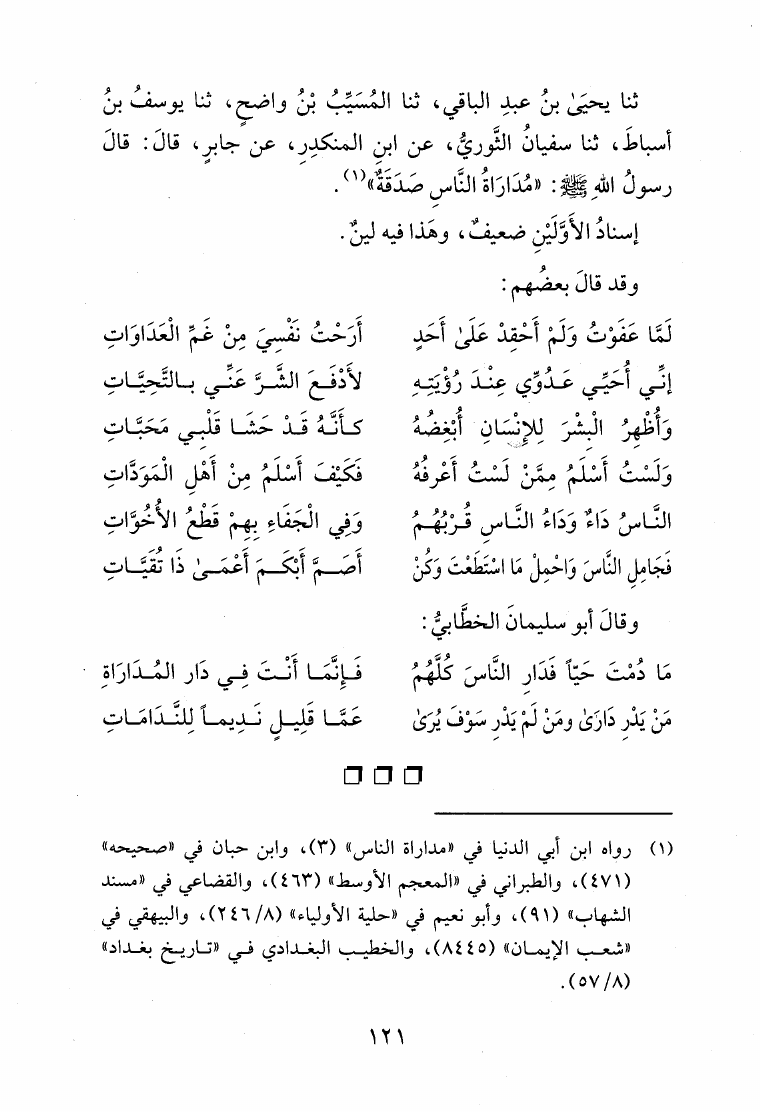 ثنا يحيَىٰ بنُ عبدِ الباقي، ثنا المُسَيِّبُ بْنُ واضحٍ، ثنا يوسفُ بنُ
أسباطَ، ثنا سفيانُ الثَّوريُّ، عن ابنِ المنكدِرِ، عن جابرٍ، قالَ: قالَ
رسولُ اللهِ ﷺ: «مُدَارَاةُ النَّاسِ صَدَقَةٌ»(١).
إسنادُ الأوَّلَيْنِ ضعيفٌ، وهَذا فيه لينٌ.
وقد قالَ بعضُهم:
لَمَّا عَفَوْتُ وَلَمْ أَحْقِدْ عَلَىٰ أَحَدٍ أَرَحْتُ نَفْسِيَ مِنْ غَمِّ الْعَدَاوَاتِ
إِنِّي أُحَيِّي عَدُوِّي عِنْدَ رُؤْيَتِهِ لأَدْفَعَ الشَّرَّ عَنِّي بِالتَّحِيَّاتِ
وَأُظْهِرُ الْبِشْرَ لِلإِنْسَانِ أُبْغِضُهُ كَأَنَّهُ قَدْ حَشَا قَلْبِي مَحَبَّاتِ
وَلَسْتُ أَسْلَمُ مِمَّنْ لَسْتُ أَعْرِفُهُ فَكَيْفَ أَسْلَمُ مِنْ أَهْلِ الْمَوَدَّاتِ
النَّاسُ دَاءٌ وَدَاءُ النَّاسِ قُرْبُهُمُ وَفِي الْجَفَاءِ بِهِمْ قَطْعُ الأُخُوَّاتِ
فَجَامِلِ النَّاسَ وَاحْمِلْ مَا اسْتَطَعْتَ وَكُنْ أَصَمَّ أَبْكَمَ أَعْمَىٰ ذَا تُقَيَّاتِ
وقالَ أبو سليمانَ الخطَّابيُّ:
مَا دُمْتَ حَيّاً فَدَارِ النَّاسَ كُلَّهُمُ فَإِنَّمَا أَنْتَ فِي دَارِ المُدَارَاةِ
مَنْ يَدْرِ دَارَىٰ ومَنْ لَمْ يَدْرِ سَوْفَ يُرَىٰ عَمَّا قَلِيلٍ نَدِيماً لِلنَّدَامَاتِ
(١) رواه ابن أبي الدنيا في «مداراة الناس» (٣)، وابن حبان في «صحيحه»
(٤٧١)، والطبراني في «المعجم الأوسط» (٤٦٣)، والقضاعي في «مسند
الشهاب» (٩١)، وأبو نعيم في «حلية الأولياء» (٨/ ٢٤٦)، والبيهقي في
«شعب الإيمان» (٨٤٤٥)، والخطيب البغدادي في «تاريخ بغداد»
(٨/ ٥٧).
١٢١